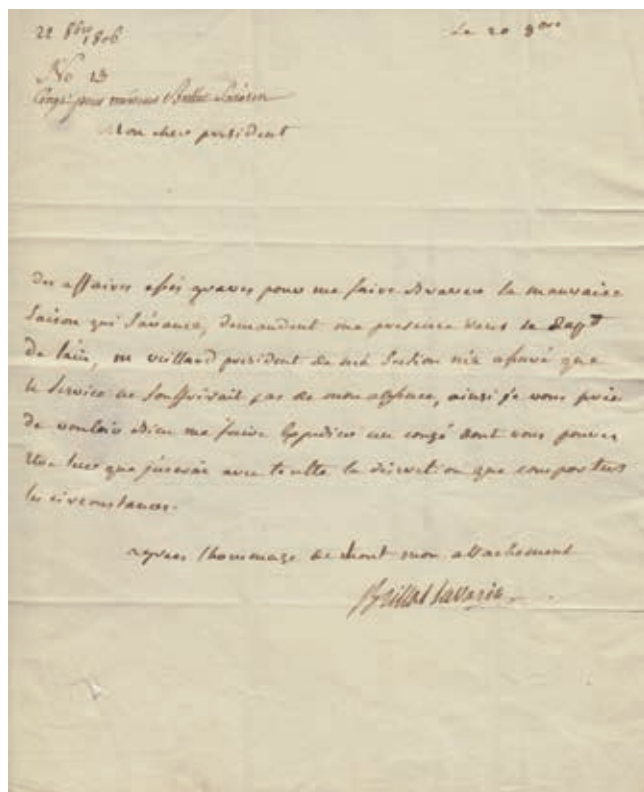 22 8bre 1806
Le 20 8bre
No 13
Congé pour monsieur Brillat Savarin
Mon cher président
des affaires assés graves pour me faire braver la mauvaise
Saison qui S'avance, demandent ma presence dans le Dept
de l'ain, mr vieillard président de ma Section m'a assuré que
le Service ne Souffrirait pas de mon absence, ainsi je vous prie
de vouloir bien me faire Expedier un congé dont vous pouvez
être sur que j'userai avec toutte la discretion que comportent
les circonstances.
agrees l'homage de tout mon attachement
Brillat Savarin